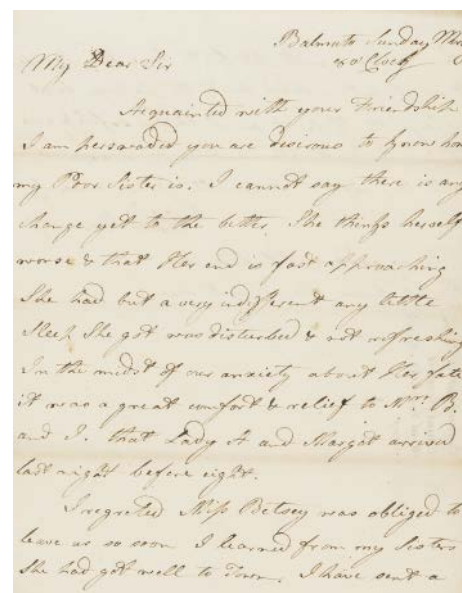 Balmuto Sunday
8 o'Clock
My Dear Sir
Acquainted with your Friendship
I am perswaded you are desirous to know how
my Poor Sister is. I cannot say there is any
change yet to the better. She thinks herself
worse & that Her end is fast approaching
She had but a very indifferent any little
Sleep She got was disturbed & not refreshing
In the midst of our anxiety about Her fate
it was a great comfort & relief to Mrs. B.
and I. that Lady A and Margot arrived
last night before eight.
I regreted Miss Betsey was obliged to
leave us so soon I learned from my Sisters
She had got well to Town. I have sent a